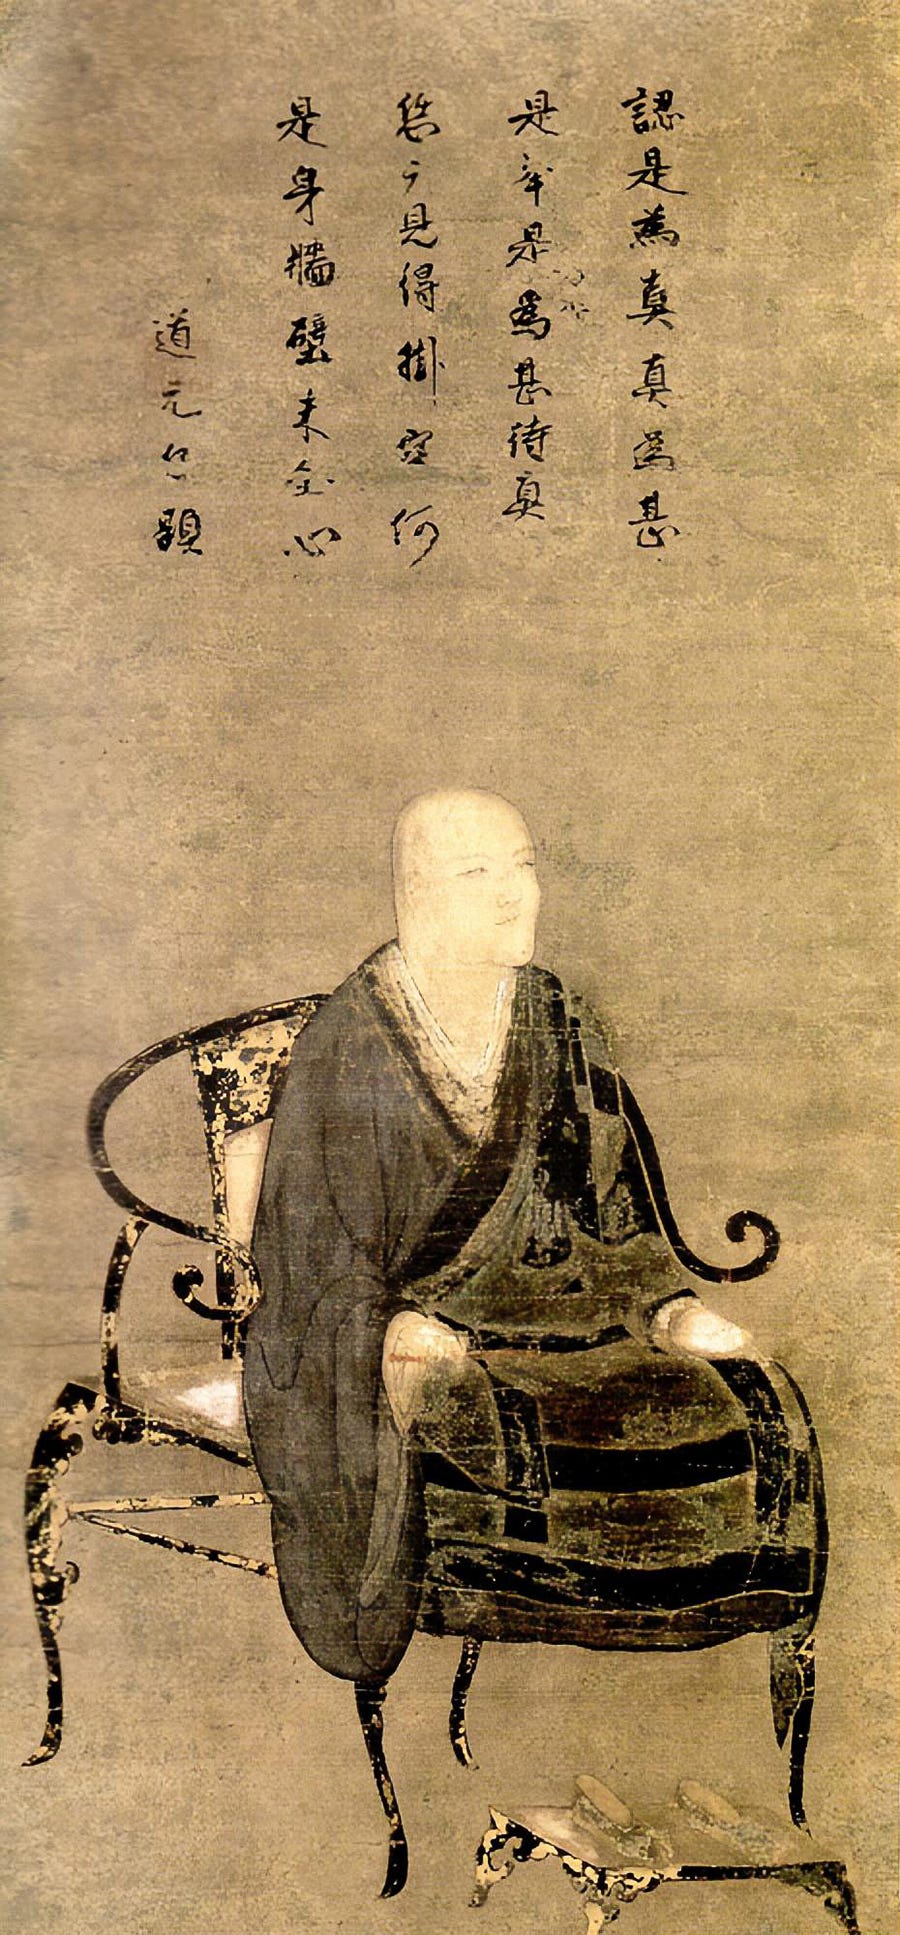 認是為真真為甚
是举是為甚待真
恁么見得掛空何
是身牆壁未全心
道元自題